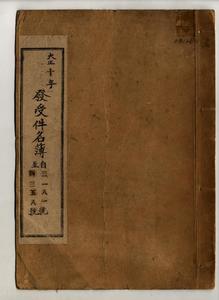 大正十年
發受件名簿
自三一八一號
至三五八號